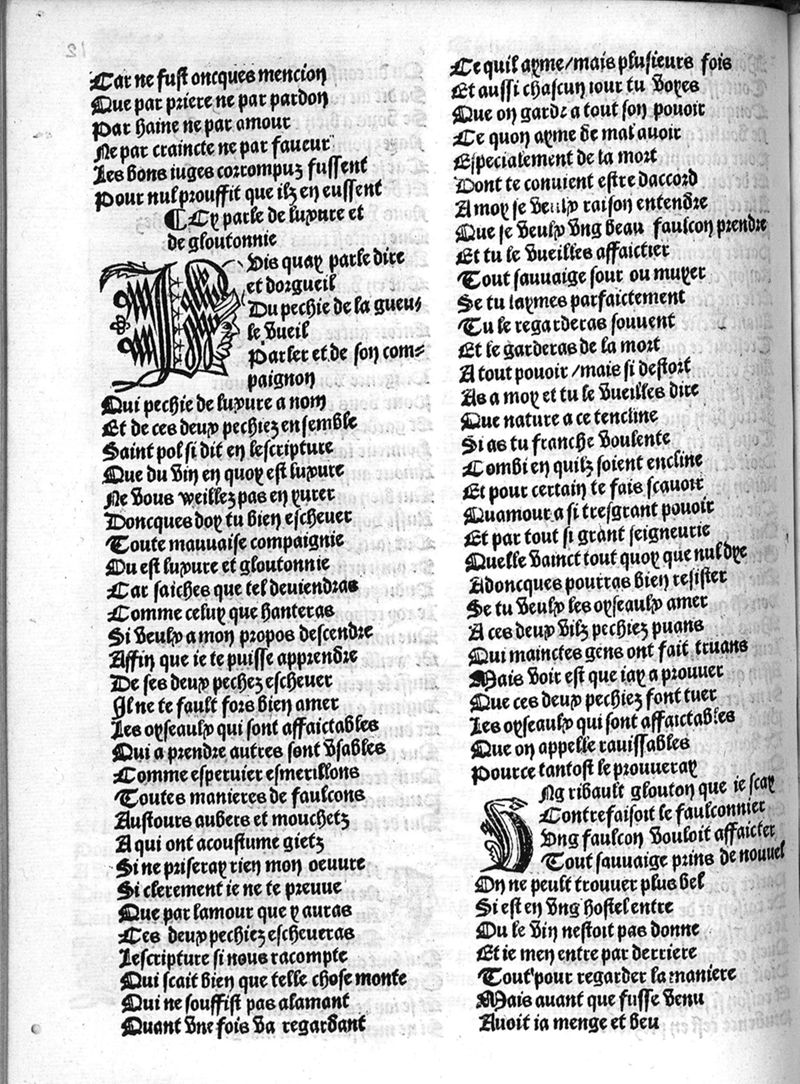 12
Car ne fust oncques mencion
Que par priere ne par pardon
Par haine ne par amour
Ne par craincte ne par faueur
Les bons iuges corrompuz fussent
Pour nul prouffit que ilz en eussent
¶ Cy parle de luxure et
de gloutonnie
PVis quay parle dire
et dorgueil
Du pechie de la gueu-
le vueil
Parler et de son com-
paignon
Qui pechie de luxure a nom
Et de ces deux pechiez ensemble
Saint pol si dit en lescripture
Que du vin en quoy est luxure
Ne vous weillez pas en yurer
Doncques doy tu bien escheuer
Toute mauuaise compaignie
Ou est luxure et gloutonnie
Car saiches que tel deuiendras
Comme celuy que hanteras
Si veulx a mon propos descendre
Affin que ie te puisse apprendre
De ses deux pechez escheuer
Il ne te fault fors bien amer
Les oyseaulx qui sont affaictables
Qui a prendre autres sont vsables
Comme esperuier esmerillons
Toutes manieres de faulcons
Austours aubers et mouchetz
A qui ont acoustume gietz
Si ne priseray rien mon oeuure
Si clerement ie ne te preuue
Que par lamour que y auras
Ces deux pechiez escheueras
Lescripture si nous racompte
Qui scait bien que telle chose monte
Qui ne souffist pas alamant
Quant vne fois va regardant
Ce quil ayme/mais plusieurs fois
Et aussi chascun iour tu voyes
Que on garde a tout son pouoir
Ce quon ayme de mal auoir
Especialement de la mort
Dont te conuient estre daccord
A moy se veulx raison entendre
Que se veulx vng beau faulcon prendre
Et tu le vueilles affaictier
Tout sauuaige sour ou muyer
Se tu laymes parfaictement
Tu le regarderas souuent
Et le garderas de la mort
A tout pouoir/mais si destort
As a moy et tu le vueilles dire
Que nature a ce tencline
Si as tu franche voulente
Combi en quilz soient encline
Et pour certain te fais scauoir
Quamour a si tresgrant pouoir
Et par tout si grant seigneurie
Quelle vainct tout quoy que nul dye
Adoncques pourras bien resister
Se tu veulx les oyseaulx amer
A ces deux vilz pechiez puans
Qui mainctes gens ont fait truans
Mais voir est que iay a prouuer
Que ces deux pechiez font tuer
Les oyseaulx qui sont affaictables
Que on appelle rauissables
Pource tantost le prouueray
VNg ribault glouton que ie scay
Contrefaisoit le faulconnier
Vng faulcon vouloit affaicter
Tout sauuaige prins de nouuel
On ne peult trouuer plus bel
Si est en vng hostel entre
Ou le vin nestoit pas donne
Et ie men entre par derriere
Tout pour regarder la maniere
Mais auant que fusse venu
Auoit ia menge et beu